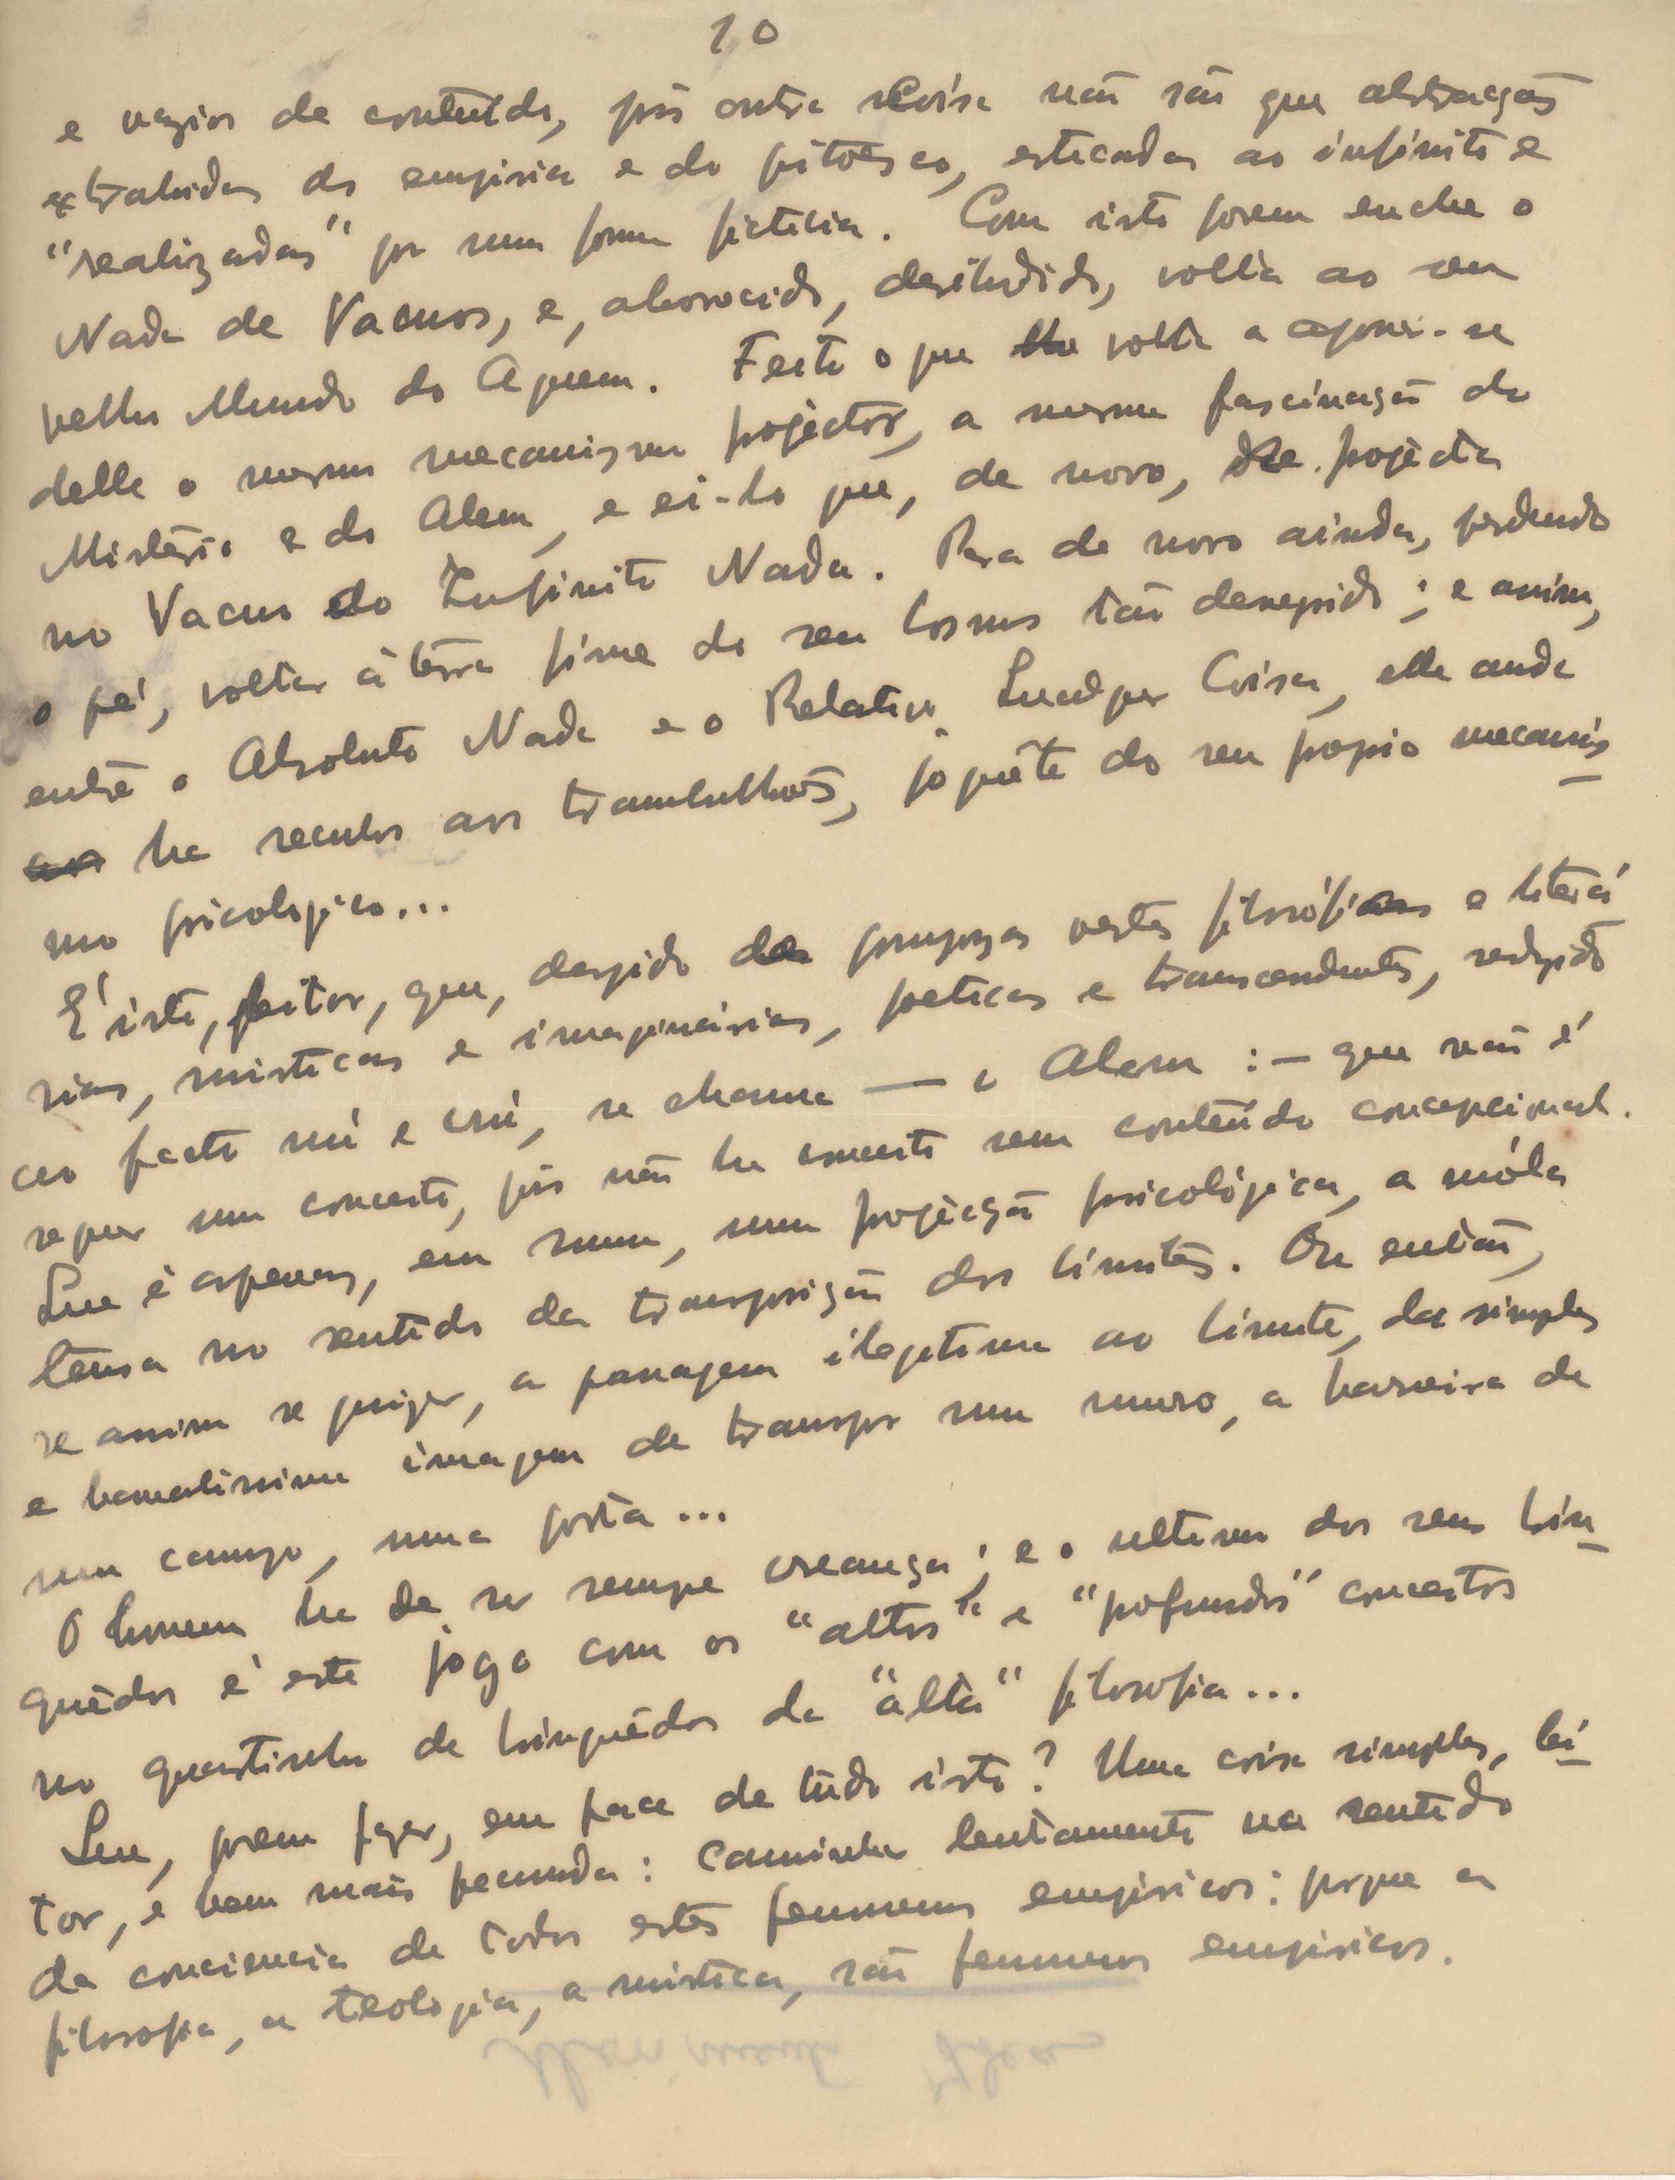 10
e vazios de conteúdo, pois outra coisa não são que abstracções
extrahidas da empiria e do pitoresco, esticadas ao infinito e
"realizadas" por uma forma ficticia. Com isto porem enche o
Nada de Vacuos, e, aborrecido, desiludido, volta ao seu
velho Mundo do Aquem. Feito o que volta a apoderar-se
delle o mesmo mecanismo projector, a mesma fascinação do
Mistério e do Alem, e ei-lo que, de novo, se projecta
no Vacuo do Infinito Nada. Para de novo ainda, perdendo
o pé, voltar á terra firme do seu Cosmos tão denegrido; e assim,
entre o Absoluto Nada e o Relativo Qualquer Coisa, elle anda
ha seculos aos trambulhões, joguête do seu proprio mecanis
mo psicologico...
É isto, leitor, que, despido das pomposas vestes filosóficas e literá
rias, misticas e imaginárias, poeticas e transcendentes, reduzido
ao facto nú e crú, se chama — o Alem : — que não é
sequer um conceito, pois não ha conceito sem conteúdo concepcional.
Que é apenas, em suma, uma projecção psicológica, a móla
tensa no sentido da transposição dos limites. Ou então,
se assim se quizer, a passagem ilegitima ao limite, da simples
e banalissima imagem de transpor um muro, a barreira de
um campo, uma porta...
O homem ha de ser sempre creança; e o ultimo dos seus brin
quêdos é este jogo com os "altos" e "profundos" conceitos
no quartinho de brinquêdos da "alta" filosofia...
Que, porem fazer, em face de tudo isto? Uma coisa simples, lei
tor, e bem mais fecunda: Caminhar lentamente no sentido
da conciencia de todos estes fenomenos empiricos: porque a
filosofia, a teologia, a mistica, são fenomenos empiricos.